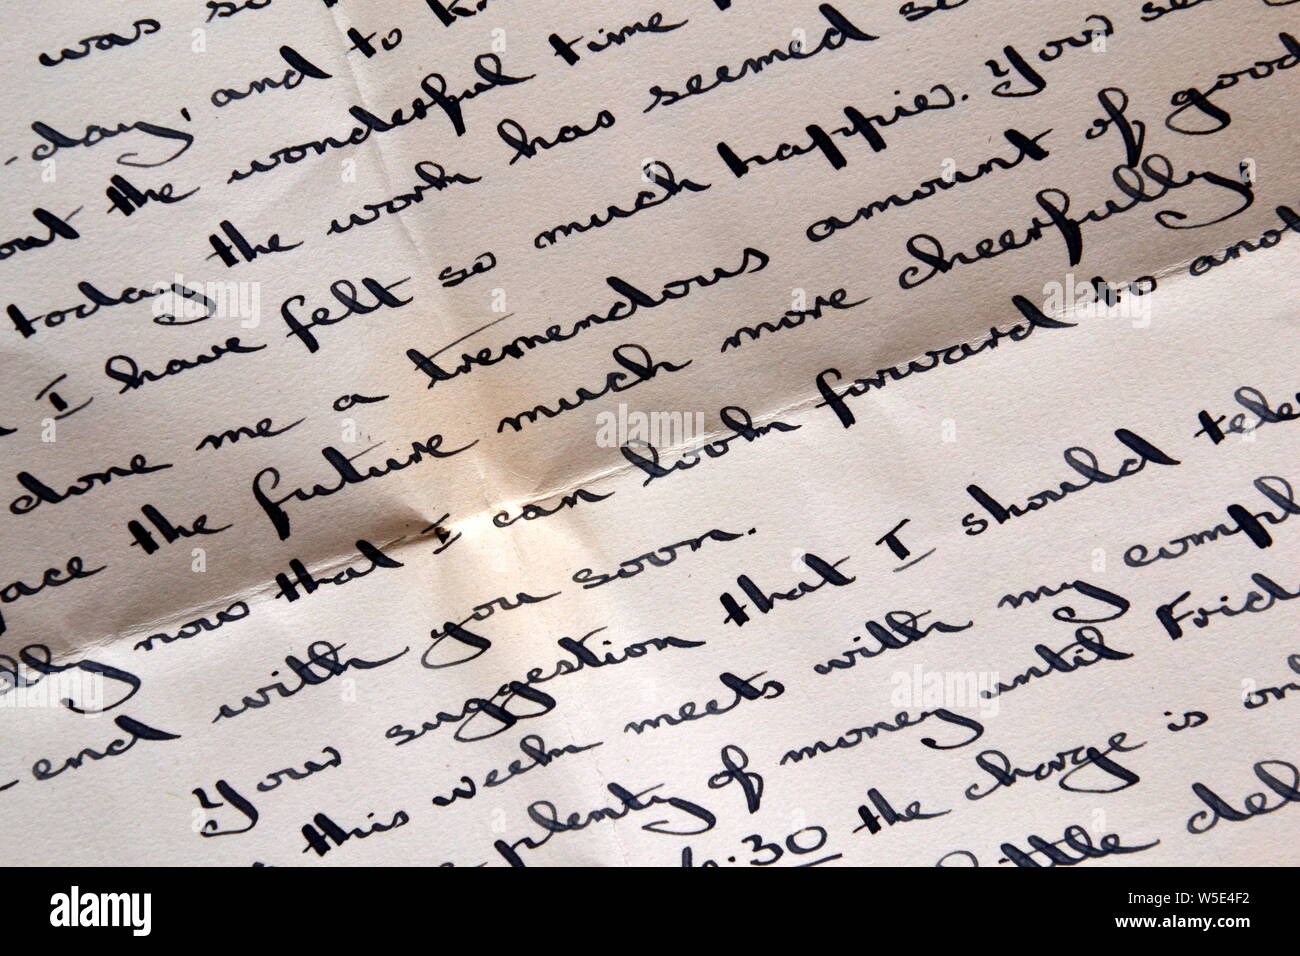 was so
-day, and to
the wonderful time
today the work has seemed
I have felt so much happier. Your
done me a tremendous amount of good
the future much more cheerfully,
now that I can look forward to
end with you soon.
Your suggestion that I should
this week meets with my
plenty of money until
:30 the charge is
alamy
a
alamy
Image ID: W5E4F2
www.alamy.com